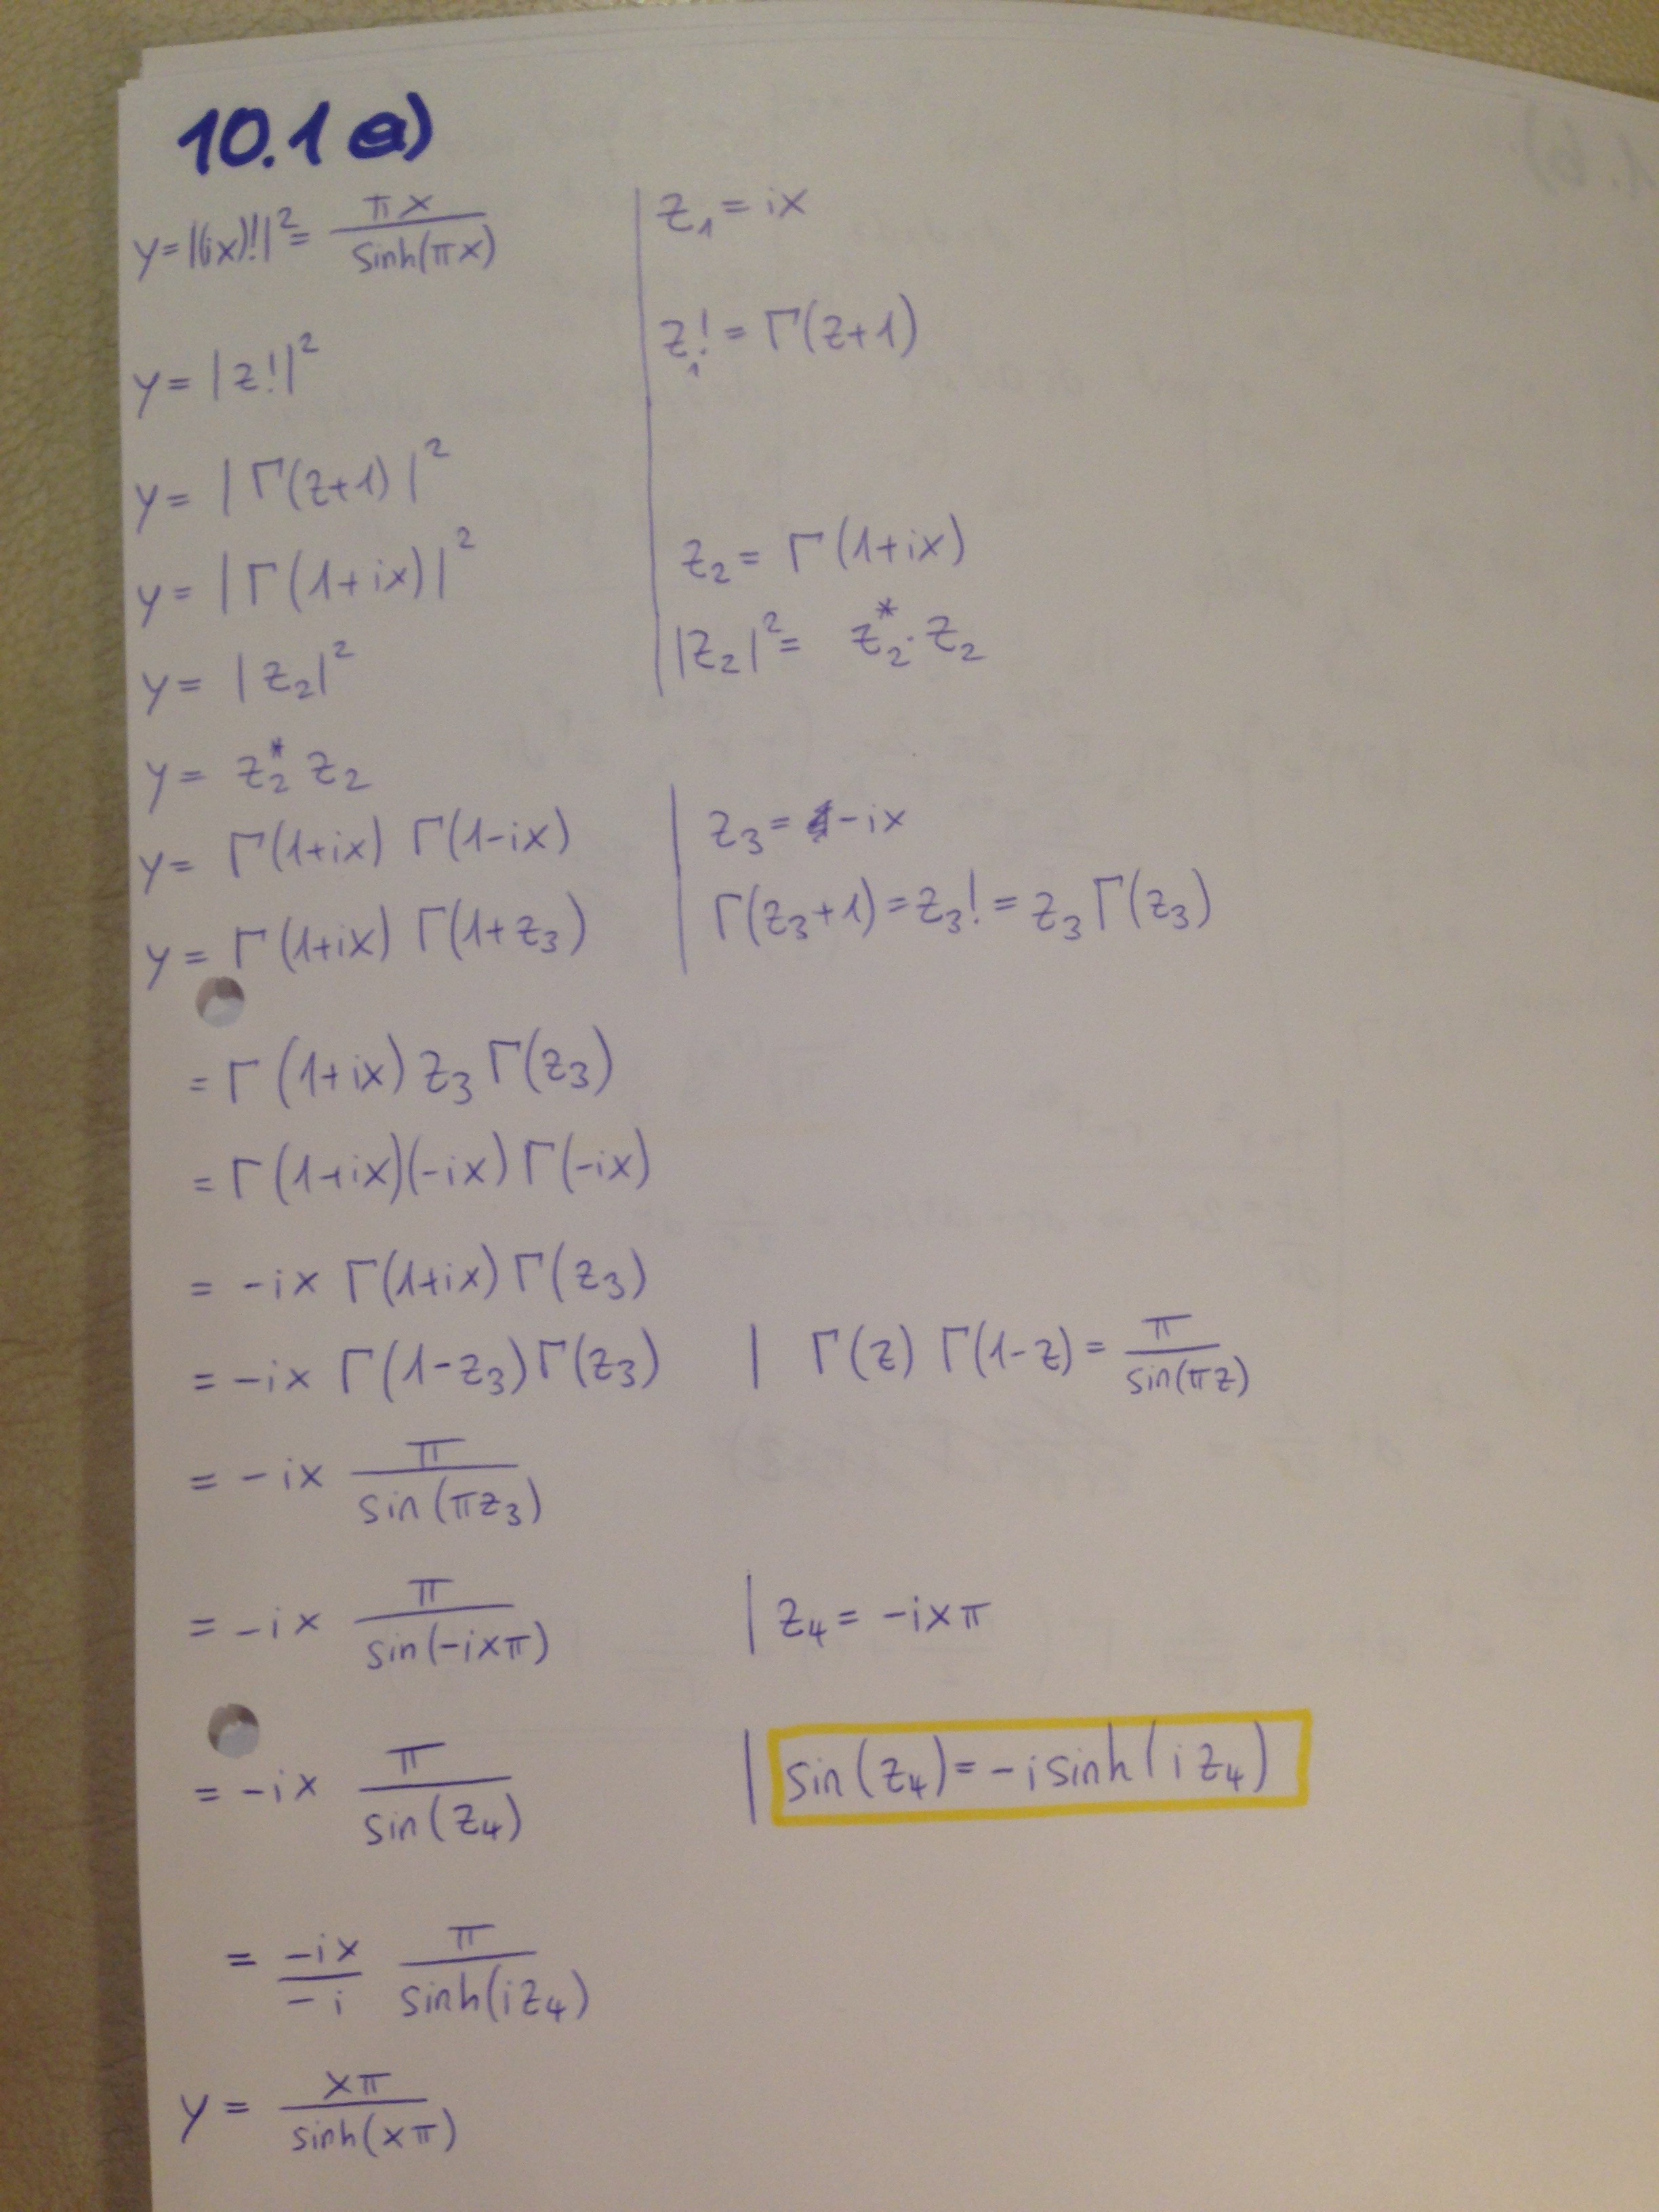 10.1 a)
y = |(ix)!|² = πx / sinh(πx) | z₁ = ix
z₁! = Γ(z+1)
y = |z!|²
y = |Γ(z+1)|²
y = |Γ(1+ix)|² | z₂ = Γ(1+ix)
y = |z₂|² | |z₂|² = z₂* · z₂
y = z₂* z₂
y = Γ(1+ix) Γ(1-ix) | z₃ = -ix
y = Γ(1+ix) Γ(1+z₃) | Γ(z₃+1) = z₃! = z₃ Γ(z₃)
= Γ(1+ix) z₃ Γ(z₃)
= Γ(1+ix)(-ix) Γ(-ix)
= -ix Γ(1+ix) Γ(z₃)
= -ix Γ(1-z₃) Γ(z₃) | Γ(z) Γ(1-z) = π / sin(πz)
= -ix π / sin(πz₃)
= -ix π / sin(-ixπ) | z₄ = -ixπ
= -ix π / sin(z₄) | sin(z₄) = -i sinh(i z₄)
= -ix / -i π / sinh(i z₄)
y = xπ / sinh(xπ)